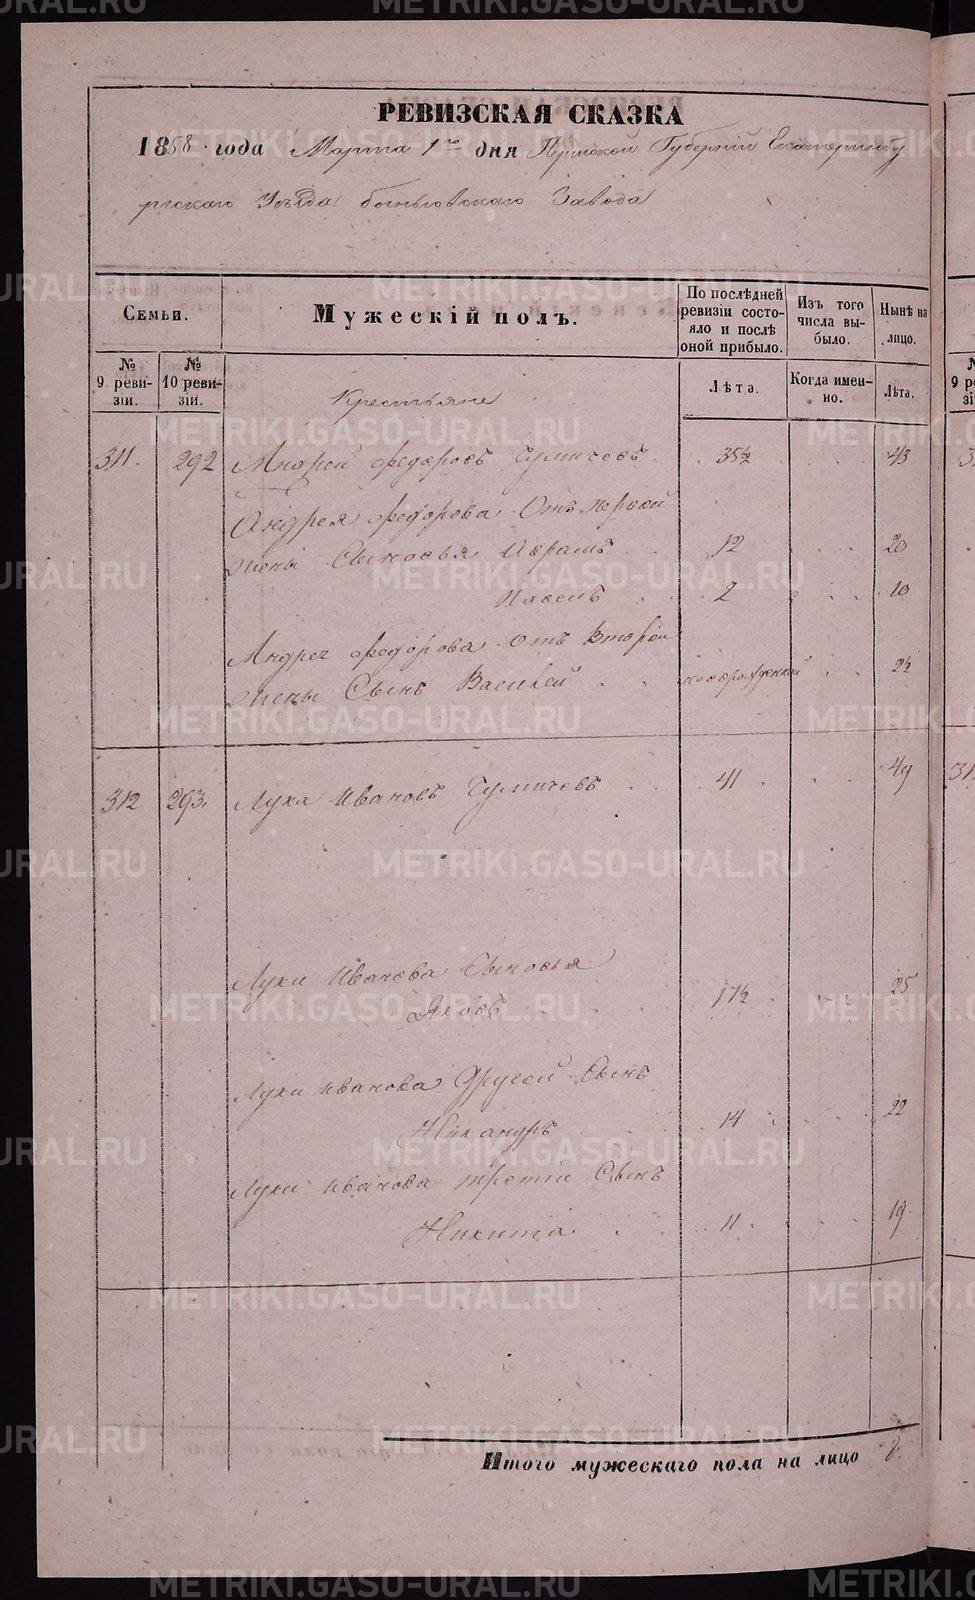 РЕВИЗСКАЯ СКАЗКА
1858 года Марта 1го дня Пермской Губерніи Екатеринбу
ргскаго Уѣзда быньговскаго Завода
Семьи.
Мужескій полъ.
По послѣдней ревизіи состояло и послѣ оной прибыло.
Изъ того числа выбыло.
Нынѣ на лицо.
№ 9. ревизіи.
№ 10 ревизіи.
Лѣта.
Когда именно.
Лѣта.
Крестьяне
311. 292 Андрей федоровъ Чумичевъ 35½ 43
Андрея федорова Отъ первой
жены Сыновья Абрамъ 12 20
Павелъ 2 10
Андрея федорова Отъ второй
жены Сынъ Василей новорожденной 2½
312 293. Лука Ивановъ Чумичевъ 41 49
Луки Иванова Сыновья
Яковъ 17½ 25
Луки иванова Другой Сынъ
Никандръ 14 22
Луки иванова третій Сынъ
Никита 11 19
Итого мужескаго пола на лицо 8.
METRIKI.GASO-URAL.RU